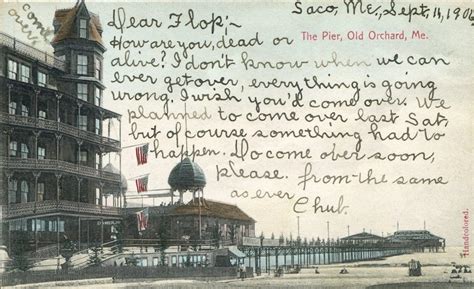 Come over.
Saco, Me., Sept. 11, 190
Dear Flop;-
The Pier, Old Orchard, Me.
How are you, dead or
alive? I don't know when we can
ever get over, everything is going
wrong. I wish you'd come over. We
planned to come over last Sat.
but of course something had to
happen. Do come over soon,
please. from the same
as ever
Chub.
Handcolored.